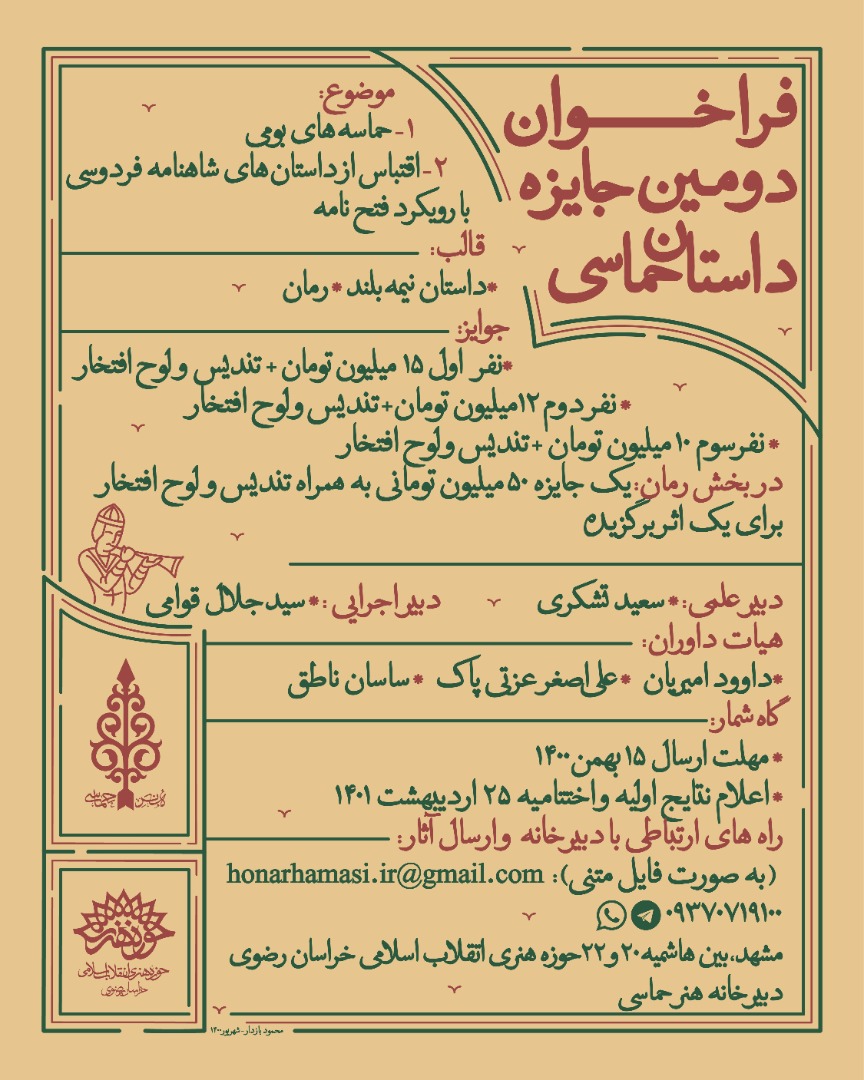 فراخوان
دومین جایزه
داستان حماسی
موضوع:
۱-حماسه های بومی
۲-اقتباس از داستان های شاهنامه فردوسی
با رویکرد فتح نامه
قالب:
*داستان نیمه بلند *رمان
جوایز:
*نفر اول ۱۵ میلیون تومان + تندیس و لوح افتخار
*نفر دوم ۱۲میلیون تومان+تندیس و لوح افتخار
*نفرسوم ۱۰ میلیون تومان +تندیس و لوح افتخار
در بخش رمان:یک جایزه ۵۰ میلیون تومانی به همراه تندیس و لوح افتخار
برای یک اثر برگزیده
دبیر علمی:*سعید تشکری
دبیر اجرایی :*سیدجلال قوامی
هیات داوران:
*داوود امیریان *علی اصغر عزتی پاک *ساسان ناطق
گاه شمار:
*مهلت ارسال ۱۵ بهمن۱۴۰۰
*اعلام نتایج اولیه و اختتامیه ۲۵ اردیبهشت ۱۴۰۱
راه های ارتباطی با دبیرخانه و ارسال آثار:
(به صورت فایل متنی): honarhamasi.ir@gmail.com
۰۹۳۷۰۷۱۹۱۰۰
مشهد،بین هاشمیه۲۰ و۲۲حوزه هنری انقلاب اسلامی خراسان رضوی
دبیرخانه هنر حماسی
حماسی
حوزه هنری
حوزه هنری انقلاب اسلامی
خراسان رضوی
محمود بازدار-شهریور۱۴۰۰